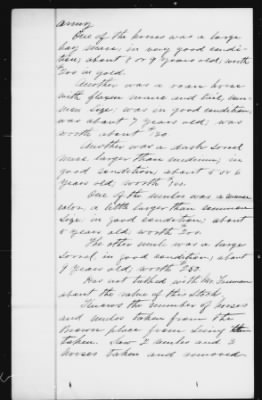 army
One of the horses was a large
bay mare, in very good condi-
tion; about 8 or 9 years old; worth
$200 in gold.
Another was a roan horse
with flaxen mane and tail, com-
mon size; was in good condition,
was about 7 years old; was
worth about $150.
Another was a dark sorrel
mare larger than medium, in
good condition; about 5 or 6
years old; worth $100.
One of the mules was a
color, a little larger than common
size, in good condition; about
5 years old; worth $200.
The other mule was a large
sorrel in good condition; about
9 years old; worth $250.
Has not talked with Mr.
about the value of this stock.
Knows the number of horses
and mules taken from the
Brown place from seeing them
taken. Saw 2 mules and 3
horses taken and removed